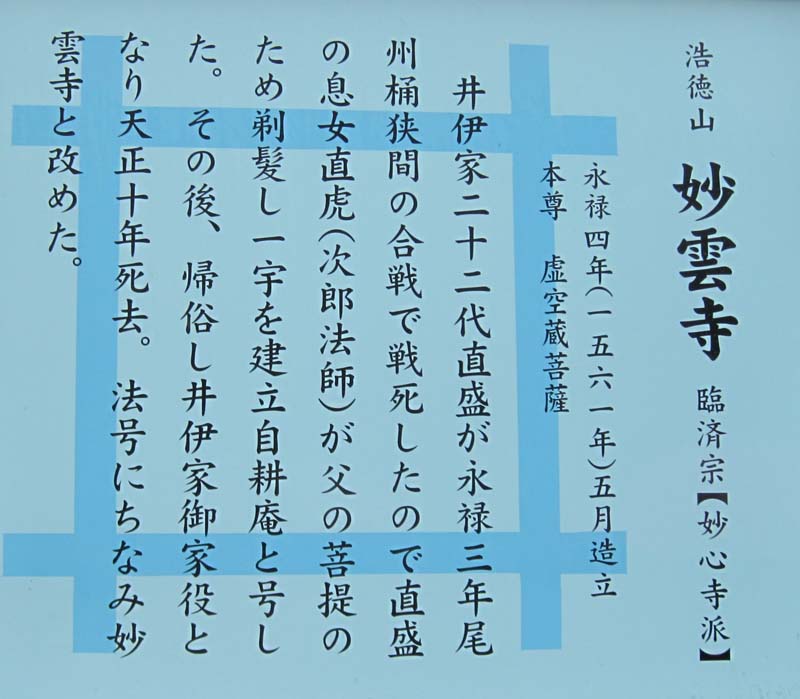 浩徳山 妙雲寺 臨済宗【妙心寺派】
永禄四年(一五六一年)五月造立
本尊 虚空蔵菩薩
井伊家二十二代直盛が永禄三年尾
州桶狭間の合戦で戦死したので直盛
の息女直虎(次郎法師)が父の菩提の
ため剃髪し一宇を建立自耕庵と号し
た。その後、帰俗し井伊家御家役と
なり天正十年死去。法号にちなみ妙
雲寺と改めた。